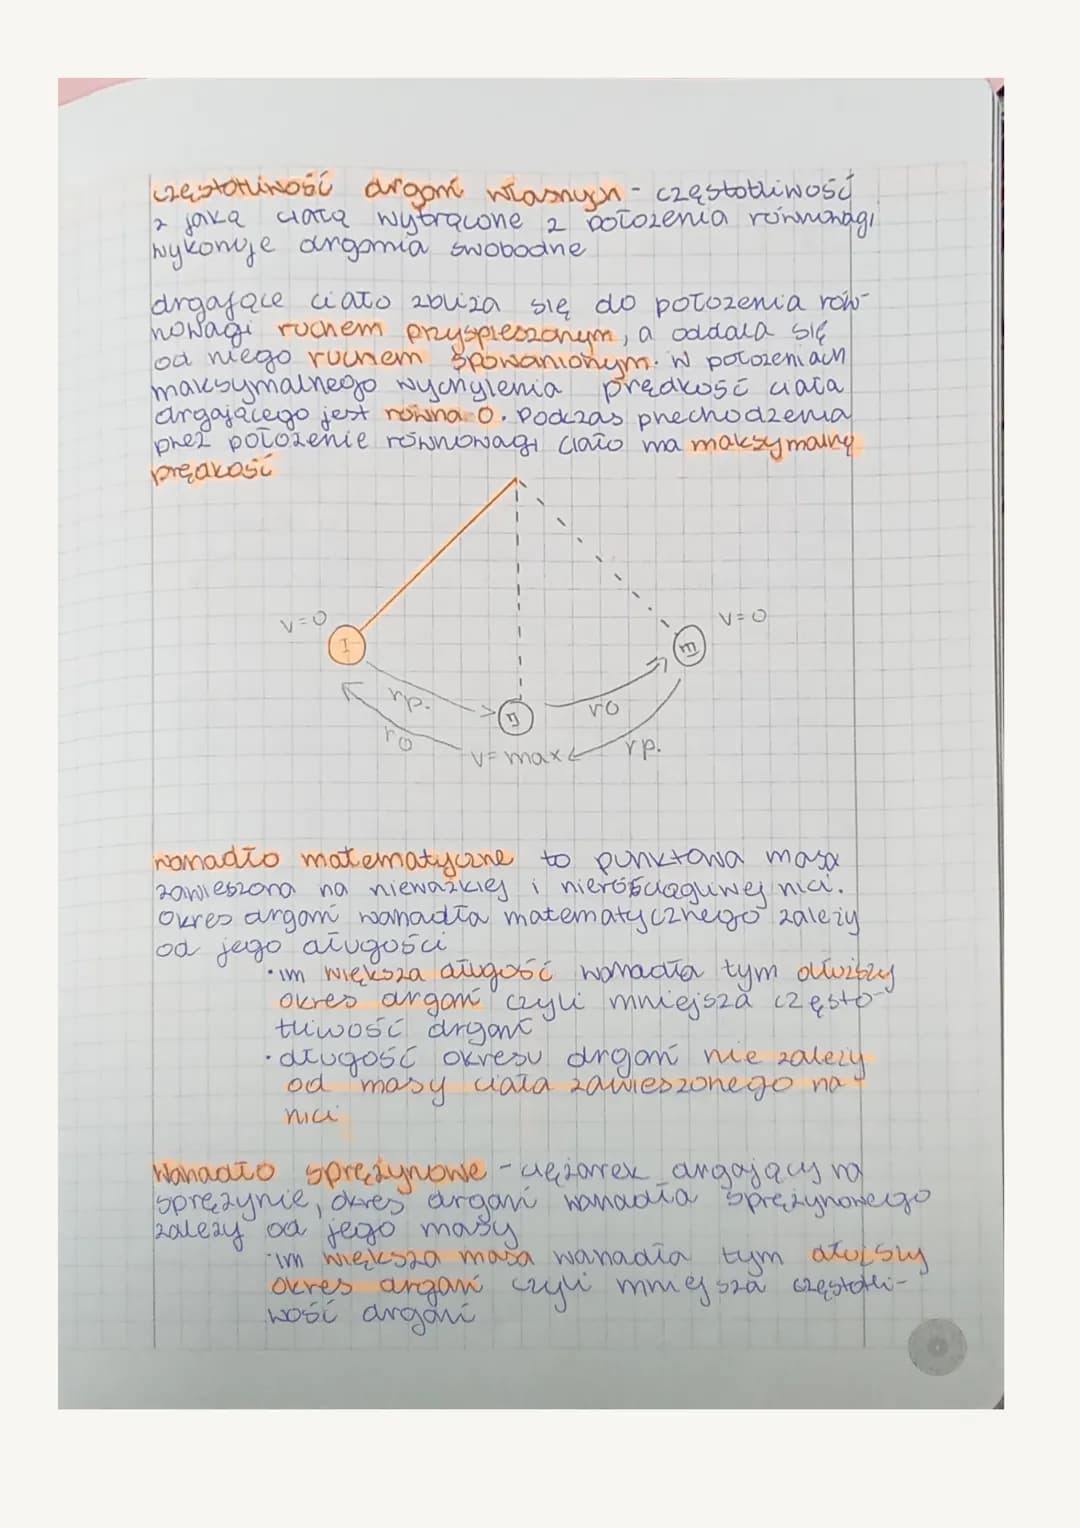 częstotliwość drgań własnych - częstotliwość
z jaką ciało wytrącone z położenia równowagi
wykonuje drgania swobodne
drgające ciało zbliża się do położenia rów-
nowagi ruchem przyspieszonym, a oddala się
od niego ruchem spowanionym. W położeniach
maksymalnego wychylenia prędkość ciała
drgającego jest równa 0. Podczas przechodzenia
przez położenie równowagi ciało ma maksymalną
prędkość
v=0
v=0
I
III
rp.
II
ro
ro
v=max
rp.
wahadło matematyczne to punktowa masa
zawieszona na nieważkiej i nierościągliwej nici.
Okres drgań wahadła matematycznego zależy
od jego długości
• im większa długość wahadła tym dłuższy
okres drgań czyli mniejsza często-
tliwość drgań
• długość okresu drgań nie zależy
od masy ciała zawieszonego na
nici
Wahadło sprężynowe - ciężarek drgający na
sprężynie, okres drgań wahadła sprężynowego
zależy od jego masy
• im większa masa wahadła tym dłuższy
okres drgań czyli mniejsza częstotli-
wość drgań